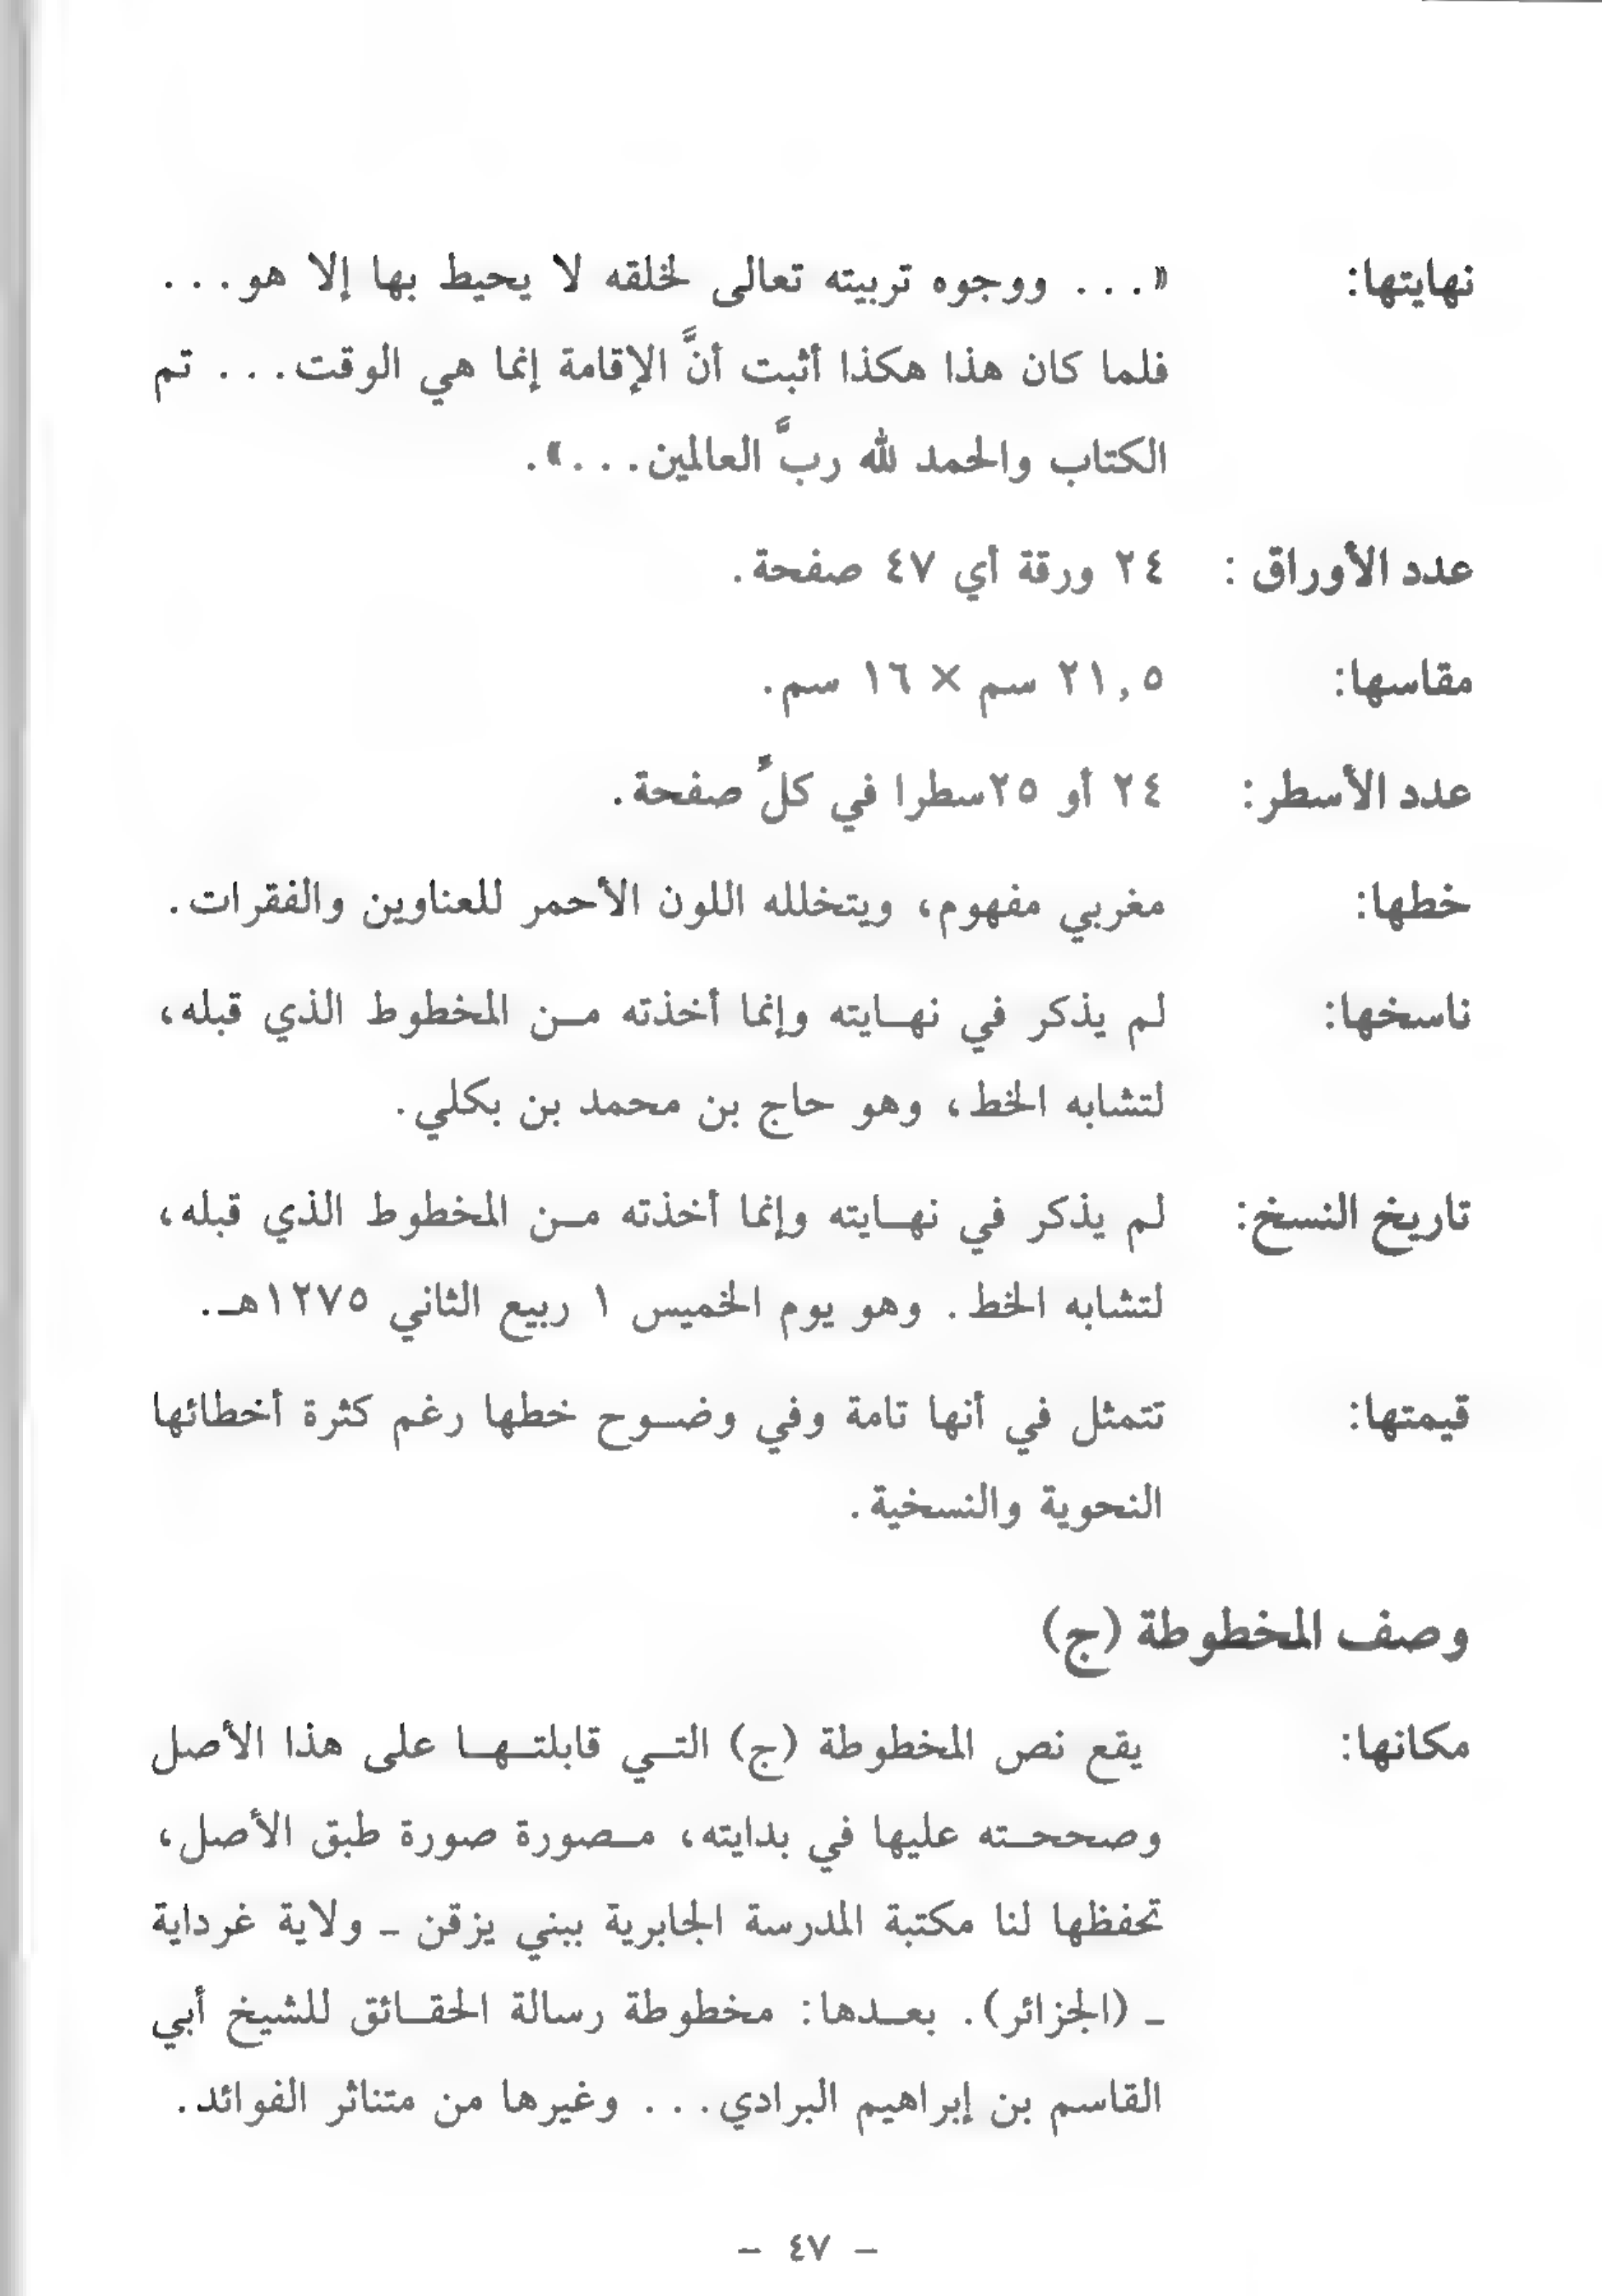 نهايتها: «... ووجوه تربيته تعالى لخلقه لا يحيط بها إلا هو...
فلما كان هذا هكذا أثبت أنَّ الإقامة إنما هي الوقت... تم
الكتاب والحمد لله ربَّ العالمين...».
عدد الأوراق : ٢٤ ورقة أي ٤٧ صفحة.
مقاسها: ٢١,٥ سم × ١٦ سم.
عدد الأسطر: ٢٤ أو ٢٥سطرا في كلِّ صفحة.
خطها: مغربي مفهوم، ويتخلله اللون الأحمر للعناوين والفقرات.
ناسخها: لم يذكر في نهـايته وإنما أخذته مـن المخطوط الذي قبله،
لتشابه الخط، وهو حاج بن محمد بن بكلي.
تاريخ النسخ: لم يذكر في نهـايته وإنما أخذته مـن المخطوط الذي قبله،
لتشابه الخط. وهو يوم الخميس ١ ربيع الثاني ١٢٧٥هـ.
قيمتها: تتمثل في أنها تامة وفي وضـوح خطها رغم كثرة أخطائها
النحوية والنسخية.
وصف المخطوطة (ج)
مكانها: يقع نص المخطوطة (ج) التـي قابلتـهـا على هذا الأصل
وصححـته عليها في بدايته، مـصورة صورة طبق الأصل،
تحفظها لنا مكتبة المدرسة الجابرية ببني يزقن ـ ولاية غرداية
ـ (الجزائر). بعـدها: مخطوطة رسالة الحقـائق للشيخ أبي
القاسم بن إبراهيم البرادي... وغيرها من متناثر الفوائد.
- ٤٧ -